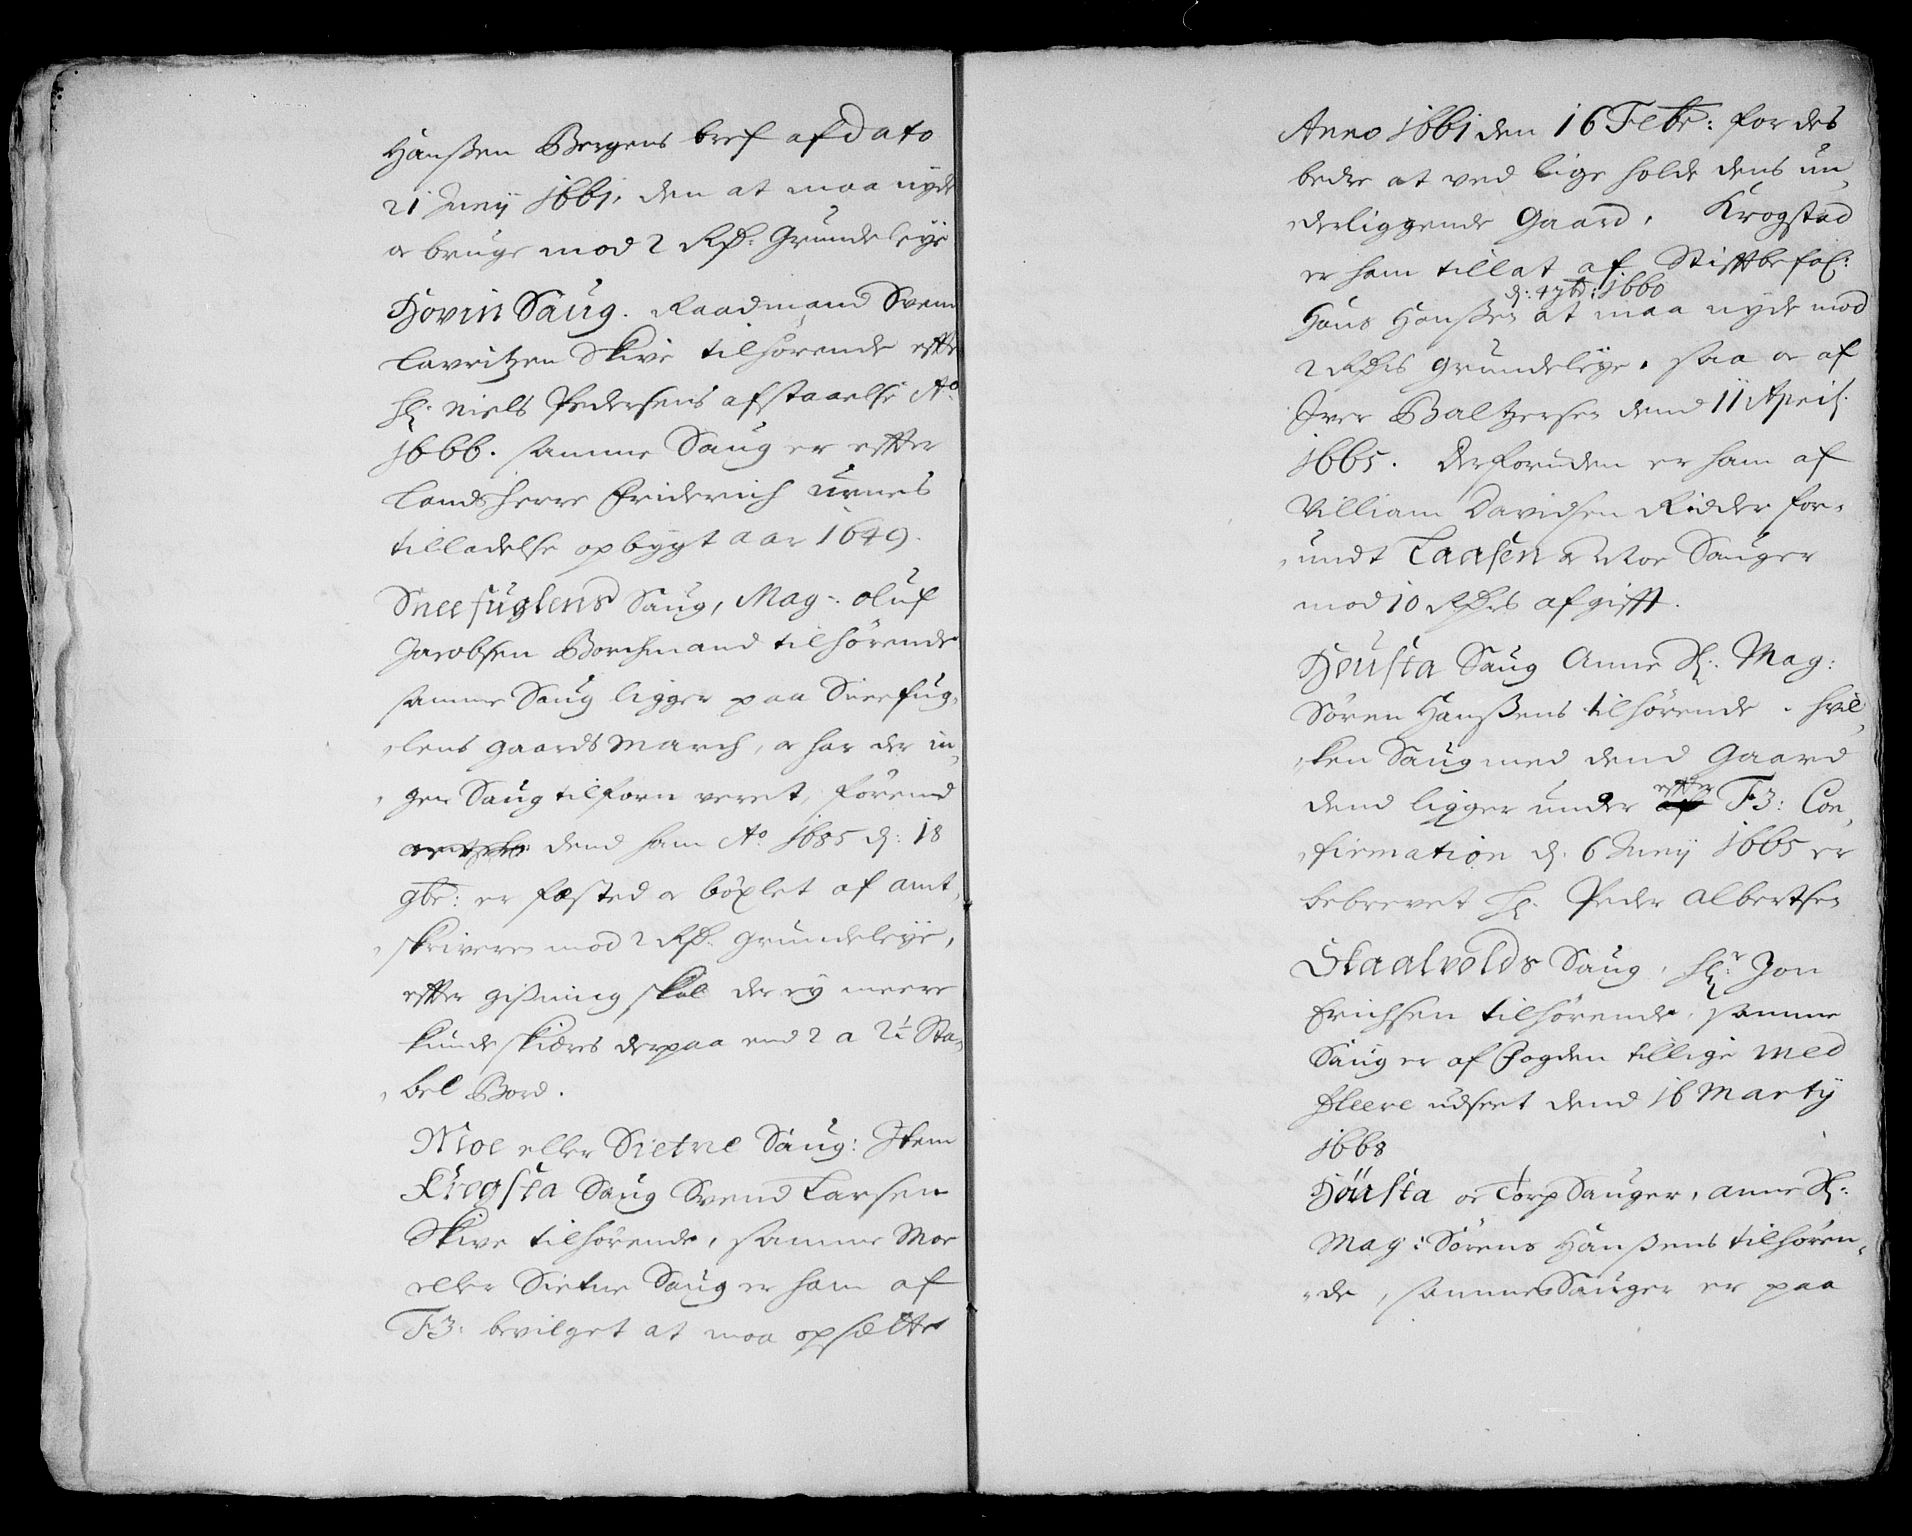 Hanßen Bergens bref af dato
21 Junij 1661, den at maa nyde
oc bruge mod 2 Rd: Grundeleye
Hovin Saug. Raadmand Svend
Lavritzen Skive tilhørende effter
Sl: Niels Pedersens afstaaelse Ao
1666. samme Saug er effter
Landsherre Friderich Urnes
tilladelse opbygt aar 1649.
Sneefuglens Saug, Mag: Oluf
Jacobsen Borchmand tilhørende
samme Saug ligger paa Sneefug,
,lens gaards March, oc har der in,
,gen Saug tilforn veret, førend
dend ham Ao 1685 d: 18
9br: er fæsted oc böxlet af amt,
,skriveren mod 2 Rd. grundeleye,
effter gißning skal der ey meere
kunde skiæres derpaa end 2 a 2½ Sta,
,bel Bord.
Moe eller Sietne Saug: Item
Krogsta Saug Svend Larsen
Skive tilhørende, samme Moe
eller Sietne Saug er ham af
F3: bevilget at maa opsætte
Anno 1661 den 16 Febr: for des
bedre at ved lige holde dens un,
derliggende Gaard, Krogstad
er ham tillat af Stifftbefal:
d: 4 7br: 1660
Hans Hanßen at maa nyde mod
2 Rdrs grundeleye, saa oc af
Iver Baltzersen dend 11 April:
1665. Derforuden er ham af
Villiam Davidsen Ridder for,
,undt Laasen oc Moe Sauger
mod 10 Rdrs afgifft.
Housta Saug Anne Sl: Mag:
Søren Hanßens tilhørende, hvil,
,ken Saug med dend Gaard
dend ligger under effter F3: Con,
,firmation d. 6 Junij 1665 er
bebrevet Sl: Peder Albertsen
Staalvolds Saug, Hr: Jon
Erichsen tilhørende, samme
Saug er af Fogden tillige med
fleere udseet dend 16 Martij
1668
Housta oc Torp Sauger, Anne Sl:
Mag: Sørens Hanßens tilhøren,
,de, samme Sauger er paa